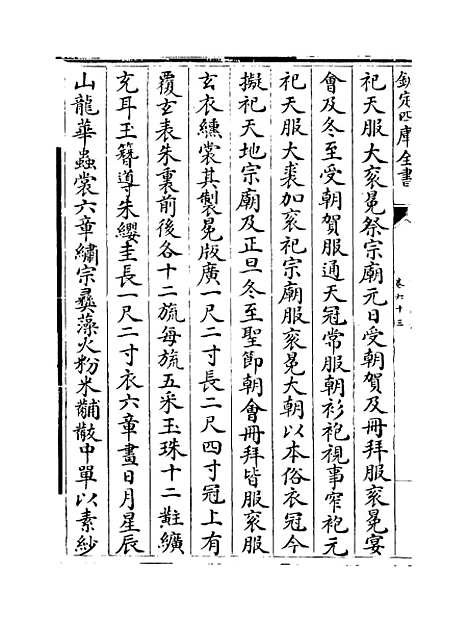 欽定四庫全書
卷六十三
祀天服大裘冕祭宗廟元日受朝賀及冊拜服袞冕宴
會及冬至受朝賀服通天冠常服朝衫袍視事窄袍元
祀天服大裘加袞祀宗廟服袞冕大朝以本俗衣冠今
擬祀天地宗廟及正旦冬至聖節朝會冊拜皆服袞服
玄衣纁裳其製冕版廣一尺二寸長二尺四寸冠上有
覆玄表朱裏前後各十二旒每旒五采玉珠十二黈纊
充耳玉簪導朱纓圭長一尺二寸衣六章畫日月星辰
山龍華蟲裳六章繡宗彝藻火粉米黼黻中單以素紗